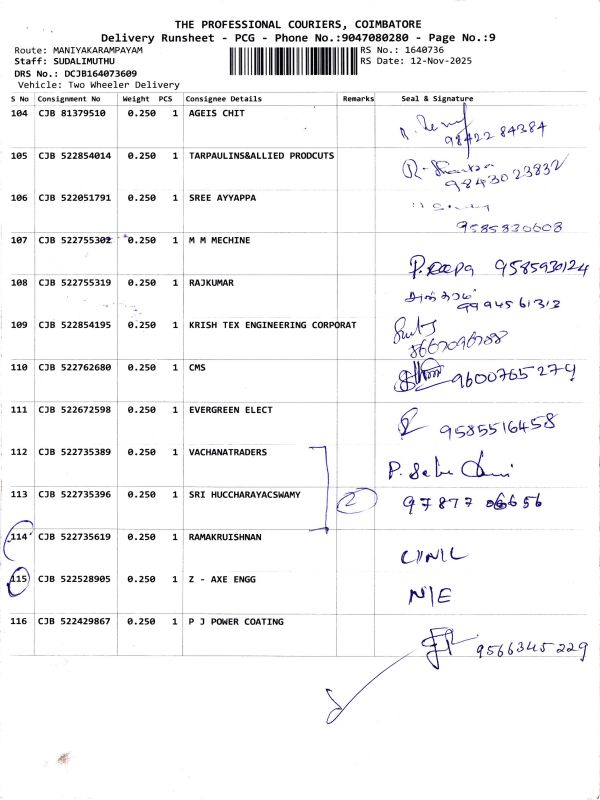 THE PROFESSIONAL COURIERS, COIMBATORE
Delivery Runsheet - PCG - Phone No.:9047080280 - Page No.:9
Route: MANIYAKARAMPAYAM RS No.: 1640736
Staff: SUDALIMUTHU RS Date: 12-Nov-2025
DRS No.: DCJB164073609
Vehicle: Two Wheeler Delivery
S No Consignment No Weight PCS Consignee Details Remarks Seal & Signature
104 CJB 81379510 0.250 1 AGEIS CHIT 98422 84384
105 CJB 522854014 0.250 1 TARPAULINS&ALLIED PRODCUTS 9843023832
106 CJB 522051791 0.250 1 SREE AYYAPPA 9585830608
107 CJB 522755302 0.250 1 M M MECHINE P. Deepa 9585930124
108 CJB 522755319 0.250 1 RAJKUMAR 9994561313
109 CJB 522854195 0.250 1 KRISH TEX ENGINEERING CORPORAT
110 CJB 522762680 0.250 1 CMS 9600765279
111 CJB 522672598 0.250 1 EVERGREEN ELECT 9585516458
112 CJB 522735389 0.250 1 VACHANATRADERS
113 CJB 522735396 0.250 1 SRI HUCCHARAYACSWAMY 2 97877 06656
114 CJB 522735619 0.250 1 RAMAKRUISHNAN
115 CJB 522528905 0.250 1 Z - AXE ENGG N/E
116 CJB 522429867 0.250 1 P J POWER COATING 9566345229